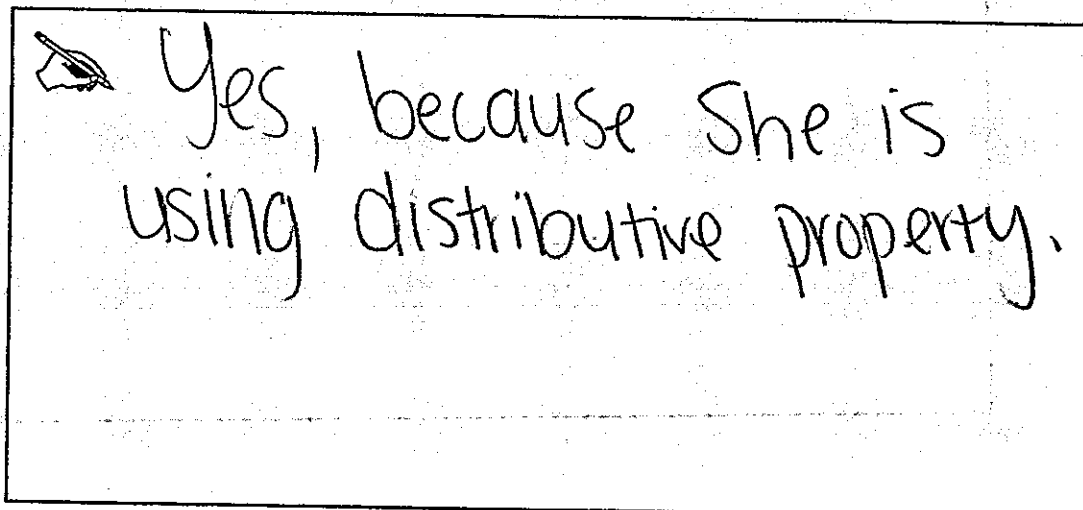 Yes, because She is
using distributive property.